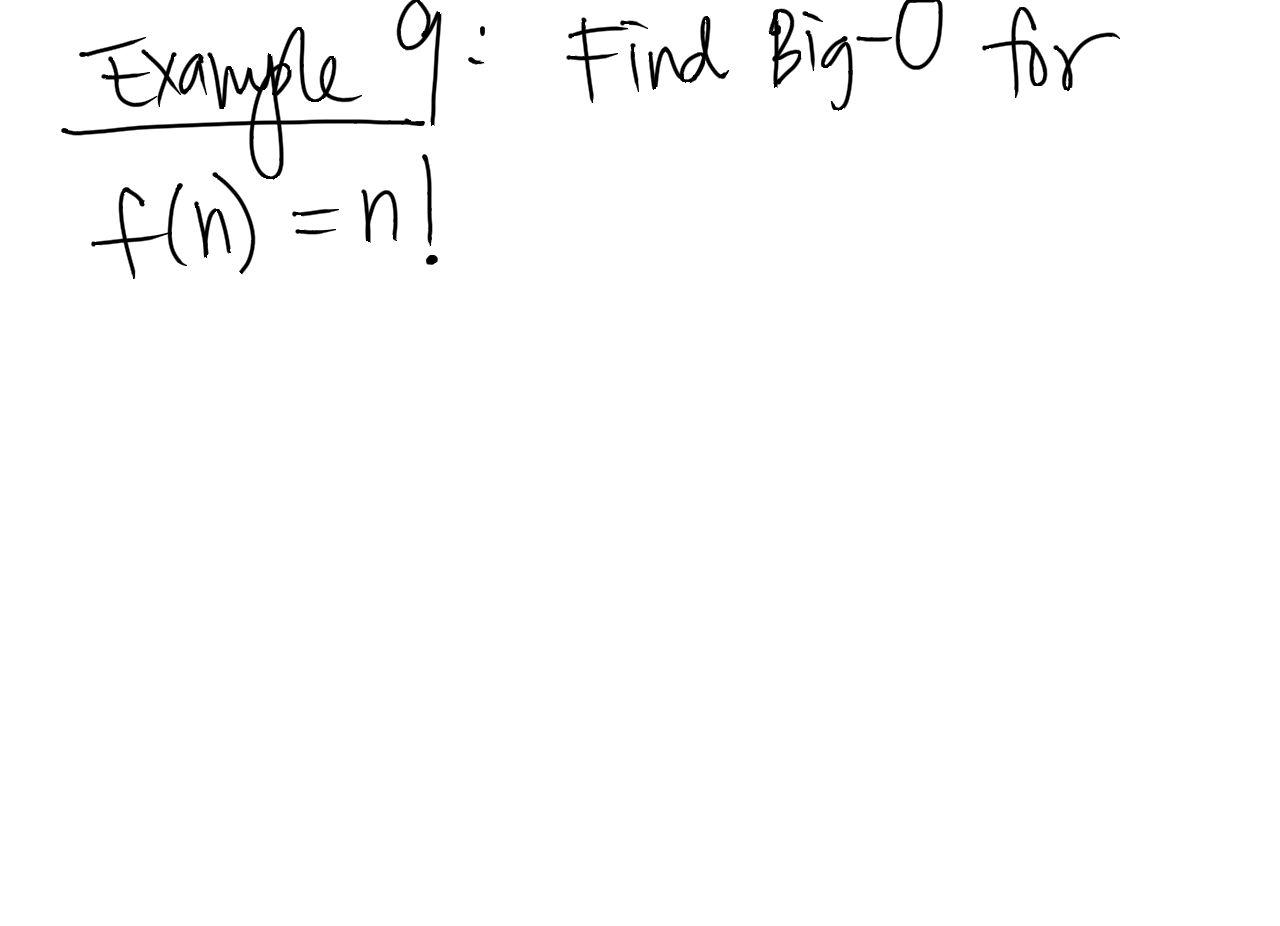 Example 9: Find Big-O for
f(n) = n!